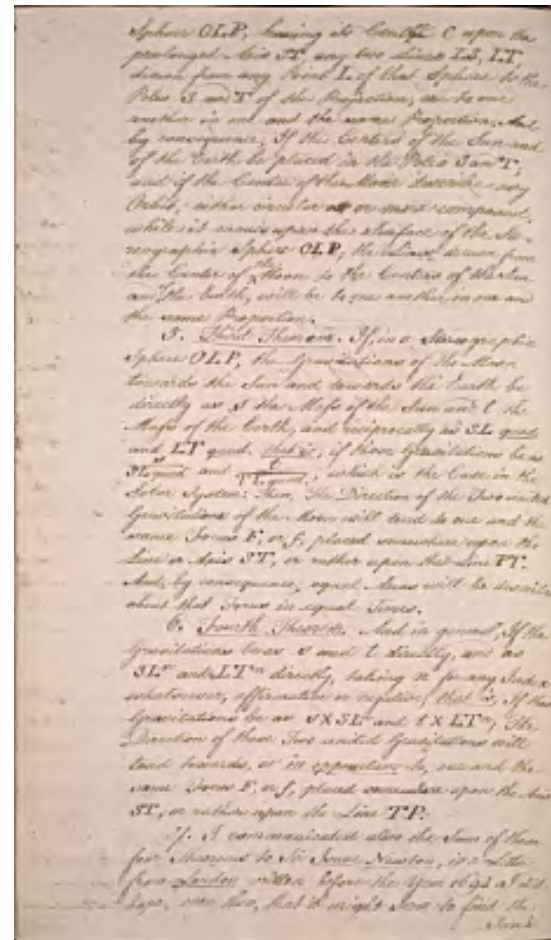 Sphere OLP, having its Center C upon the
prolonged Axis ST, any two Lines LS, LT,
drawn from any Point L of that Sphere to the
Poles S and T of the Projection, are to one
another in one and the same Proportion. And
by consequence, If the Centers of the Sun and
of the Earth be placed in the Poles S and T;
and if the Center of the Moon describe any
Orbit, either circular or more compound,
while it moves upon the Surface of the Ste-
reographic Sphere OLP, the Lines drawn from
the Center of the Moon to the Centers of the Sun
and the Earth, will be to one another in one and
the same Proportion.
5. Third Theorem. If, in a Stereographic
Sphere OLP, the Gravitations of the Moon
towards the Sun and towards the Earth be
directly as s the Mass of the Sun and t the
Mass of the Earth, and reciprocally as SL quad
and LT quad. that is, if those Gravitations be as
SL quad and t LT quad., which is the Case in the
Solar System: Then, The Direction of the Two united
Gravitations of the Moon will tend to one and the
same Focus F, or f, placed somewhere upon the
Line or Axis ST, or rather upon the Line PT.
And, by consequence, equal Areas will be describ'd
about that Focus in equal Times.
6. Fourth Theorem. And in general, If the
Gravitations be as s and t directly, and as
SLⁿ and LTⁿ directly, taking n for any Index
whatsoever, affirmative or negative, that is, If those
Gravitations be as s X SLⁿ and t X LTⁿ; The
Direction of these Two united Gravitations will
tend towards, or in opposition to, one and the
same Focus F, or f, placed somewhere upon the Axis
ST, or rather upon the Line TP.
7. I communicated also the Sum of these
four Theorems to Sir Isaac Newton, in a Letter
from London written before the Year 1694 I did
hope, even then, that it might seem to find the
Same